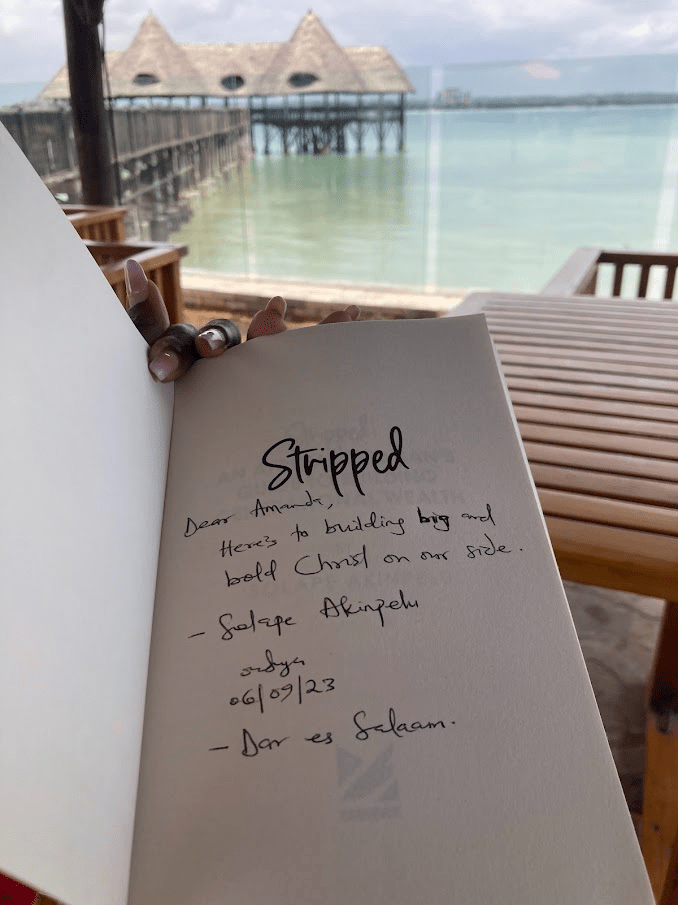 Stripped
Dear Amanda,
Here's to building big and
bold Christ on our side.
- Solape Akinpelu
06/09/23
- Dar es Salaam.